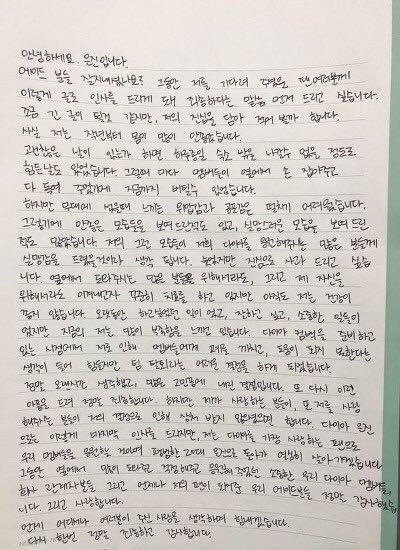 안녕하세요. 은진입니다.
에이드 분들 잘지내셨나요? 그동안 저를 기다려 주었을 팬 여러분께
이렇게 글로 인사를 드리게 돼 죄송하다는 말씀 먼저 드리고 싶습니다.
조금 긴 글이 될것 같지만, 저의 진심을 담아 적어 볼까 합니다.
사실 저는 작년부터 몸이 많이 안좋았습니다.
괜찮은 날이 있는가 하면 하루종일 숙소 밖을 나갈수 없을 정도로
힘든날도 있었습니다. 그럴때 마다 멤버들이 옆에서 손 잡아주고
다 독여 주었기에 지금까지 버틸수 있었습니다.
하지만 무대에 섰을때 느끼는 위압감과 공포감은 떨치기 어려웠습니다.
그렇기에 안좋은 모습들을 보여드린적도 있고, 실망스러운 모습을 보여 드린
적도 많았습니다. 저의 그런 모습이 저희 다이아를 응원해주는 많은 분들께
실망감을 드렸을거라 생각 됩니다. 늦었지만 진심으로 사과 드리고 싶습
니다. 옆에서 도와주시는 많은 분들을 위해서라도, 그리고 제 자신을
위해서라도 이겨내고자 꾸준히 치료를 하고 있지만 아직도 저는 건강이
좋지 않습니다. 오랫동안 하고싶었던 일이 었고, 잘하고 싶고, 소중한 일들이
였지만 지금의 저는 많이 부족함을 느끼고 있습니다. 다이아 컴백을 준비 하고
있는 시점에서 저로 인해 멤버들에게 폐를 끼치고, 도움이 되지 못한다는
생각이 들어 힘들지만 팀 탈퇴라는 어려운 결정을 하게 되었습니다.
정말 오래시간 생각했고, 많은 고민끝에 내린 결정입니다. 또 다시 이런
아픔을 드려 정말 죄송합니다. 하지만 제가 사랑하는 분들이, 또 저를 사랑
해주는 분들이 저의 결정으로 인해 상처 받지 않았으면 합니다. 다이아 은진
으로는 이렇게 마지막 인사를 드리지만, 저는 다이아를 가장 사랑하는 팬으로
우리 멤버들을 응원할 것이며 평범한 20대 은진으로 돌아가 열심히 살아가겠습니다.
그동안 옆에서 많이 도와주고 걱정해주고 응원해주었던 소중한 우리 다이아 멤버들,
회사 관계자분들 그리고 언제나 저의 편이 되어준 우리 에이드분들 정말 감사했습
니다 그리고 사랑합니다.
언제 어디에나 여러분이 주신 사랑을 생각하며 힘내겠습니다.
다시 한번 정말 죄송하고 감사합니다.